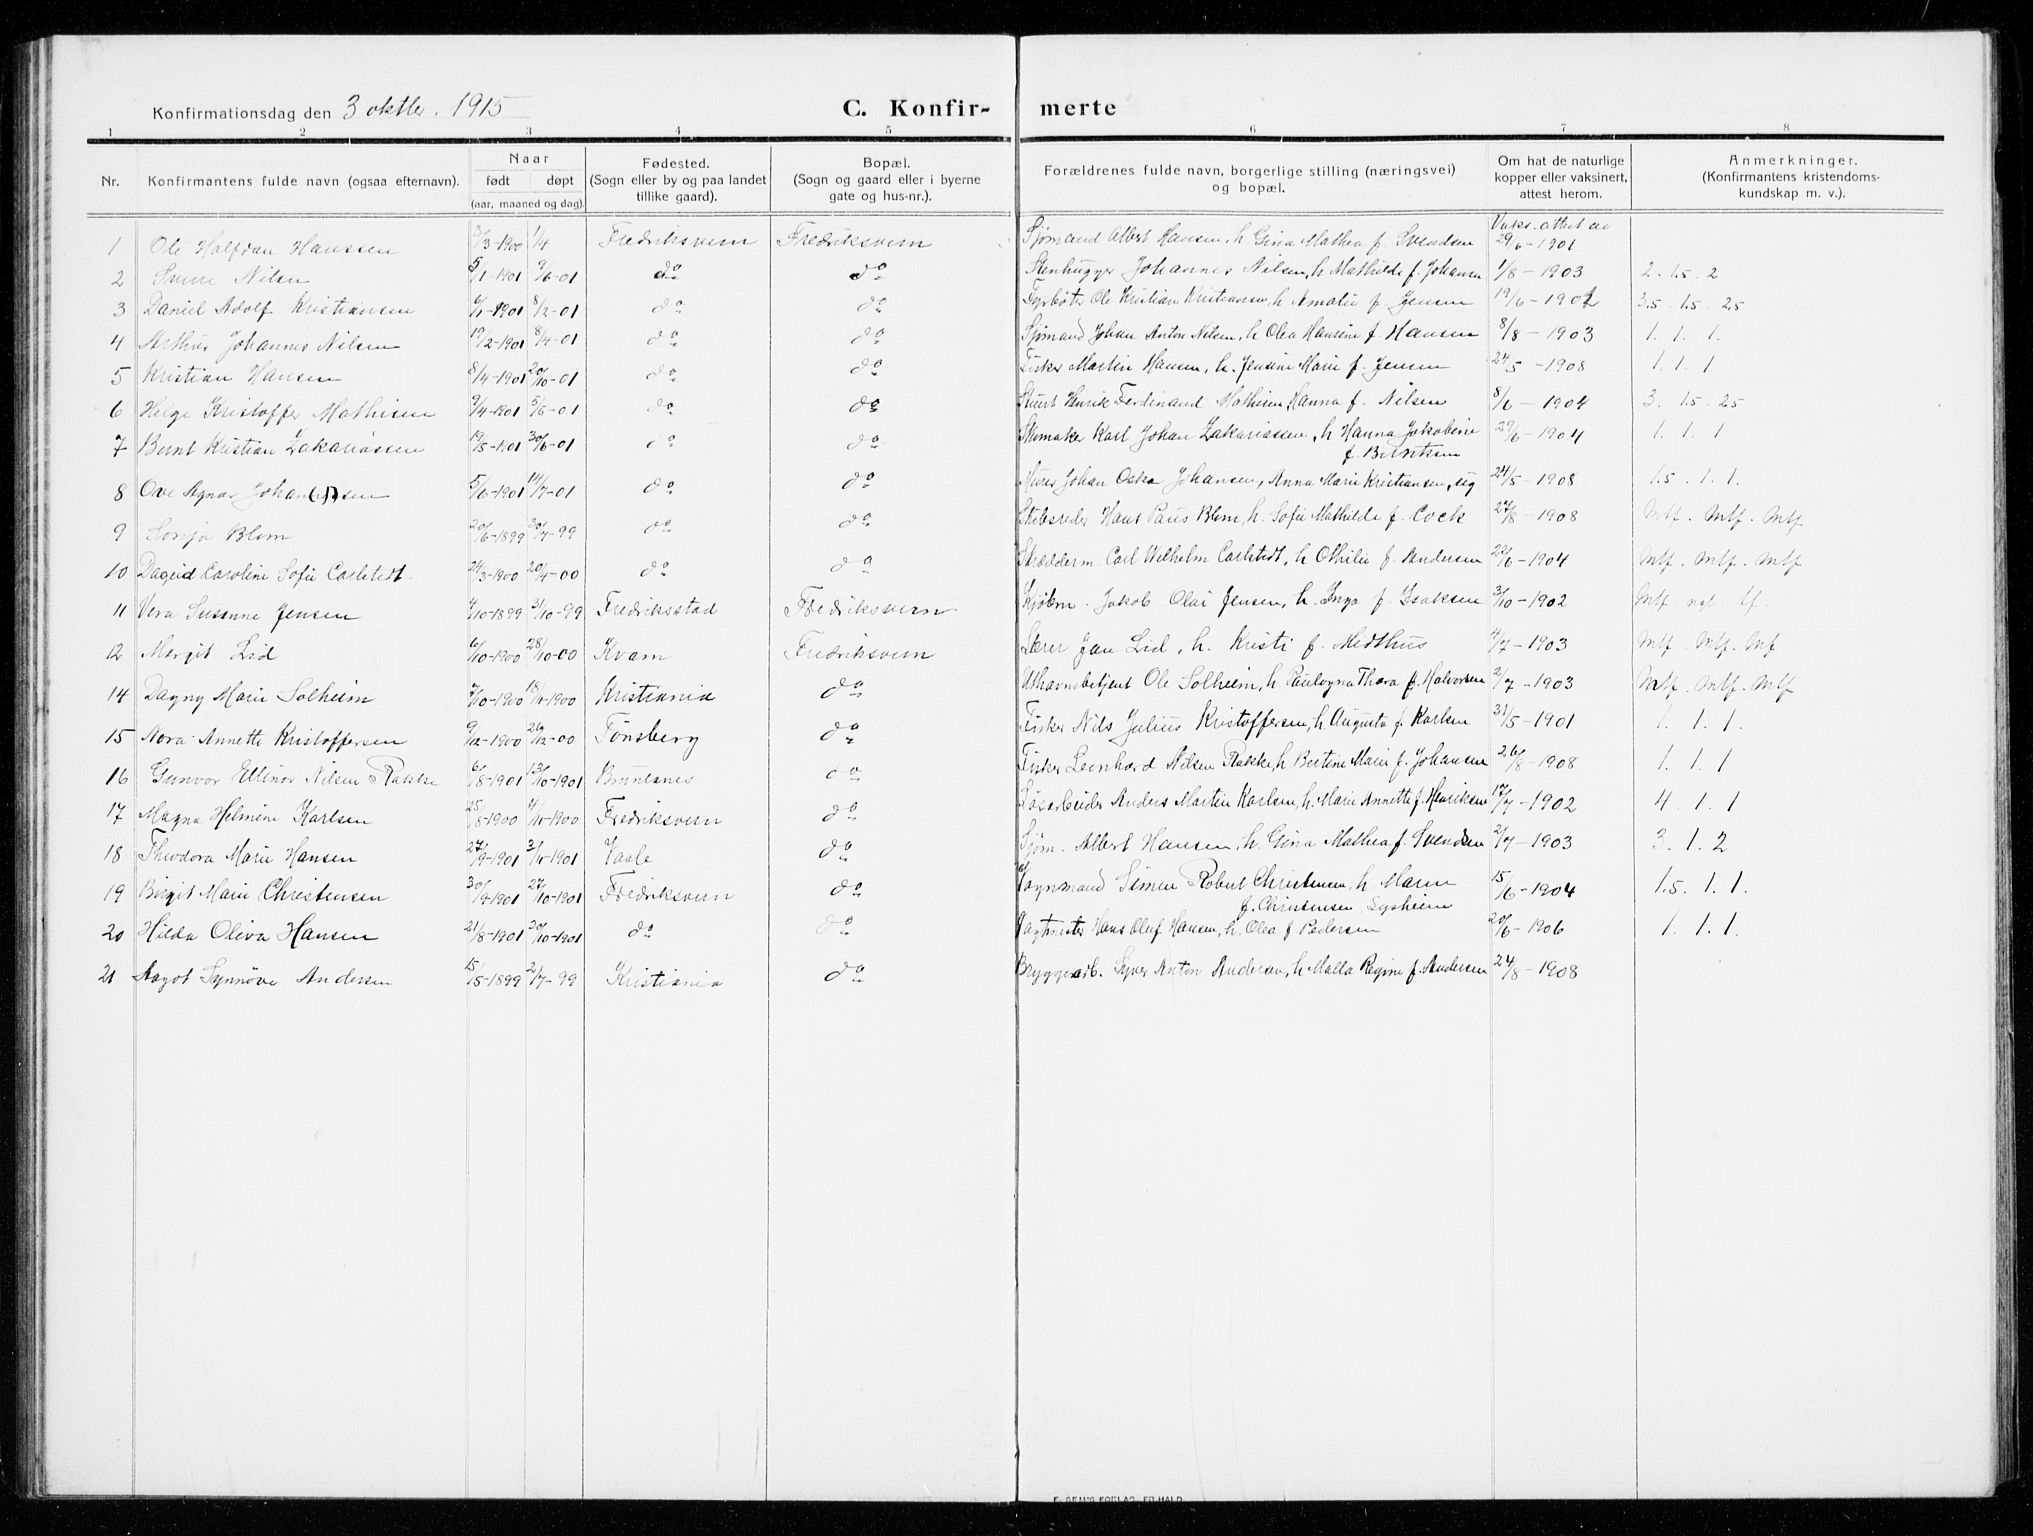 Konfirmationsdag den 3 oktbr. 1915 C. Konfir- merte
1 2 3 4 5 6 7 8
Nr. Konfirmantens fulde navn (ogsaa efternavn). Naar født døpt (aar, maaned og dag). Fødested. (Sogn eller by og paa landet tillike gaard). Bopæl. (Sogn og gaard eller i byerne gate og hus-nr.). Forældrenes fulde navn, borgerlige stilling (næringsvei) og bopæl. Om hat de naturlige kopper eller vaksinert, attest herom. Anmerkninger. (Konfirmantens kristendoms- kundskap m. v.).
1 Ole Halfdan Hanssen 3/3-1900 1/4 Fredriksvern Fredriksvern Sjømand Albert Hansen, h Gina Mathea f. Svendsen Vaks. attest av 29/6-1901
2 Sverre Nilsen 5/1-1901 9/6-01 do do Stenhugger Johannes Nilsen, h Mathilde f. Johansen 1/8-1903 2. 1.5. 2
3 Daniel Adolf Kristiansen 6/1-1901 8/2-01 do do Fyrbøter Ole Kristian Kristiansen, h Amalie f. Jensen 19/6-1902 3.5. 1.5. 2.5
4 Arthur Johannes Nilsen 19/2-1901 8/4-01 do do Sjømand Johan Anton Nilsen, h Olea Hansine f. Hansen 8/8-1903 1. 1. 1.
5 Kristian Hansen 8/4-1901 20/10-01 do do Fisker Martin Hansen, h. Jensine Marie f. Jensen 24/5-1908 1. 1. 1
6 Helge Kristoffer Mathisen 9/4-1901 5/6-01 do do Stuert Henrik Ferdinand Mathisen, Hanna f. Nilsen 8/6-1904 3. 1.5. 2.5
7 Bernt Kristian Zakariassen 19/5-1901 30/6-01 do do Skomaker Karl Johan Zakariassen, h Hanna Jakobine
f. Berntsen 29/6-1904 1. 1. 1
8 Ove Agnar Johan(s)sen 5/6-1901 14/7-01 do do Murer Johan Oskar Johansen, Anna Marie Kristiansen, ug 24/5-1908 1.5. 1. 1.
9 Sonja Blom 20/6-1899 30/7-99 do do Skibsreder Hans Paus Blom, h. Sofie Mathilde f. Cock 27/8-1908 Mtf. Mtf. Mtf
10 Dagrid Caroline Sofie Carlstedt 24/3-1900 20/4-00 do do Skrædderm. Carl Wilhelm Carlstedt, h Othilie f. Andersen 22/6-1904 Mtf. Mtf. Mtf
11 Vera Susanne Jensen 4/10-1899 31/10-99 Fredriksstad Fredriksvern Kjøbm. Jakob Olai Jensen, h. Inga f. Isaksen 3/10-1902 Mtf. ngt. tf.
12 Margit Lid 6/10-1900 28/10-00 Kvam Fredriksvern Lærer Jan Lid, h. Kristi f. Midthus 4/7-1903 Mtf. Mtf. Mf
14 Dagny Marie Solheim 7/10-1900 Kristiania do Uthavnsbetjent Ole Solheim, h Paulogna Thora f. Halvorsen 2/7-1903 Mtf. Mtf. Mtf
15 Nora Annette Kristoffersen 9/12-1900 26/12-00 Tønsberg do Fisker Nils Julius Kristoffersen, h Augusta f Karlsen 31/5-1901 1. 1. 1.
16 Gunvor Ellinor Nilsen Rakke 6/8-1901 13/10-1901 Brunlanes do Fisker Leonhard Nilsen Rakke, h Bertine Marie f. Johansen 26/8-1908 1. 1. 1
17 Magna Helmine Karlsen 25/8-1900 Fredriksvern do Løsarbeider Anders Martin Karlsen, h. Marie Annette f. Henriksen 17/7-1902 4. 1. 1
18 Theodora Marie Hansen 27/9-1901 Vaale do Sjøm. Albert Hansen, h. Gina Mathea f. Svendsen 2/7-1903 3. 1. 2
19 Birgit Marie Christensen 30/9-1901 27/10-1901 Fredriksvern do Vognmand Simen Robert Christensen, h. Maren
f. Christensen, 15/6-1904 1.5. 1. 1.
20 Hilda Oliva Hansen 21/8-1901 20/10-1901 do do Vagtmester Hans Oluf Hansen, h. Olea f Pedersen 20/6-1906 1. 1. 1.
21 Aagot Synnøve Andersen 15/5-1899 2/7-99 Kristiania do Bryggearb. Syver Anton Andersen, h Malla Regine f. Andersen 24/8-1908